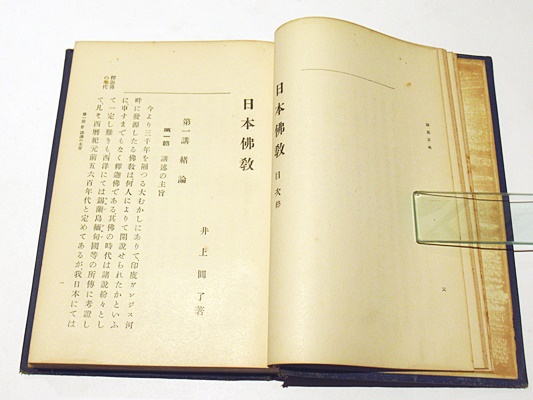 日本佛教 目次終
六
日本佛教
井上圓了著
第一講 緒論
第一節 講述の主旨
今より三千年を隔つる大むかしにありて印度ガンジス河
畔に發源したる佛教は何人によりて開說せられたかといふ
に申すまでもなく釋迦佛である其佛の時代は諸說紛々とし
て一定し難きも西洋にては錫蘭島緬甸國等の所傳に考證し
て凡そ西曆紀元前五六百年代と定めてあるが我日本にては
釋迦佛
の年代
一